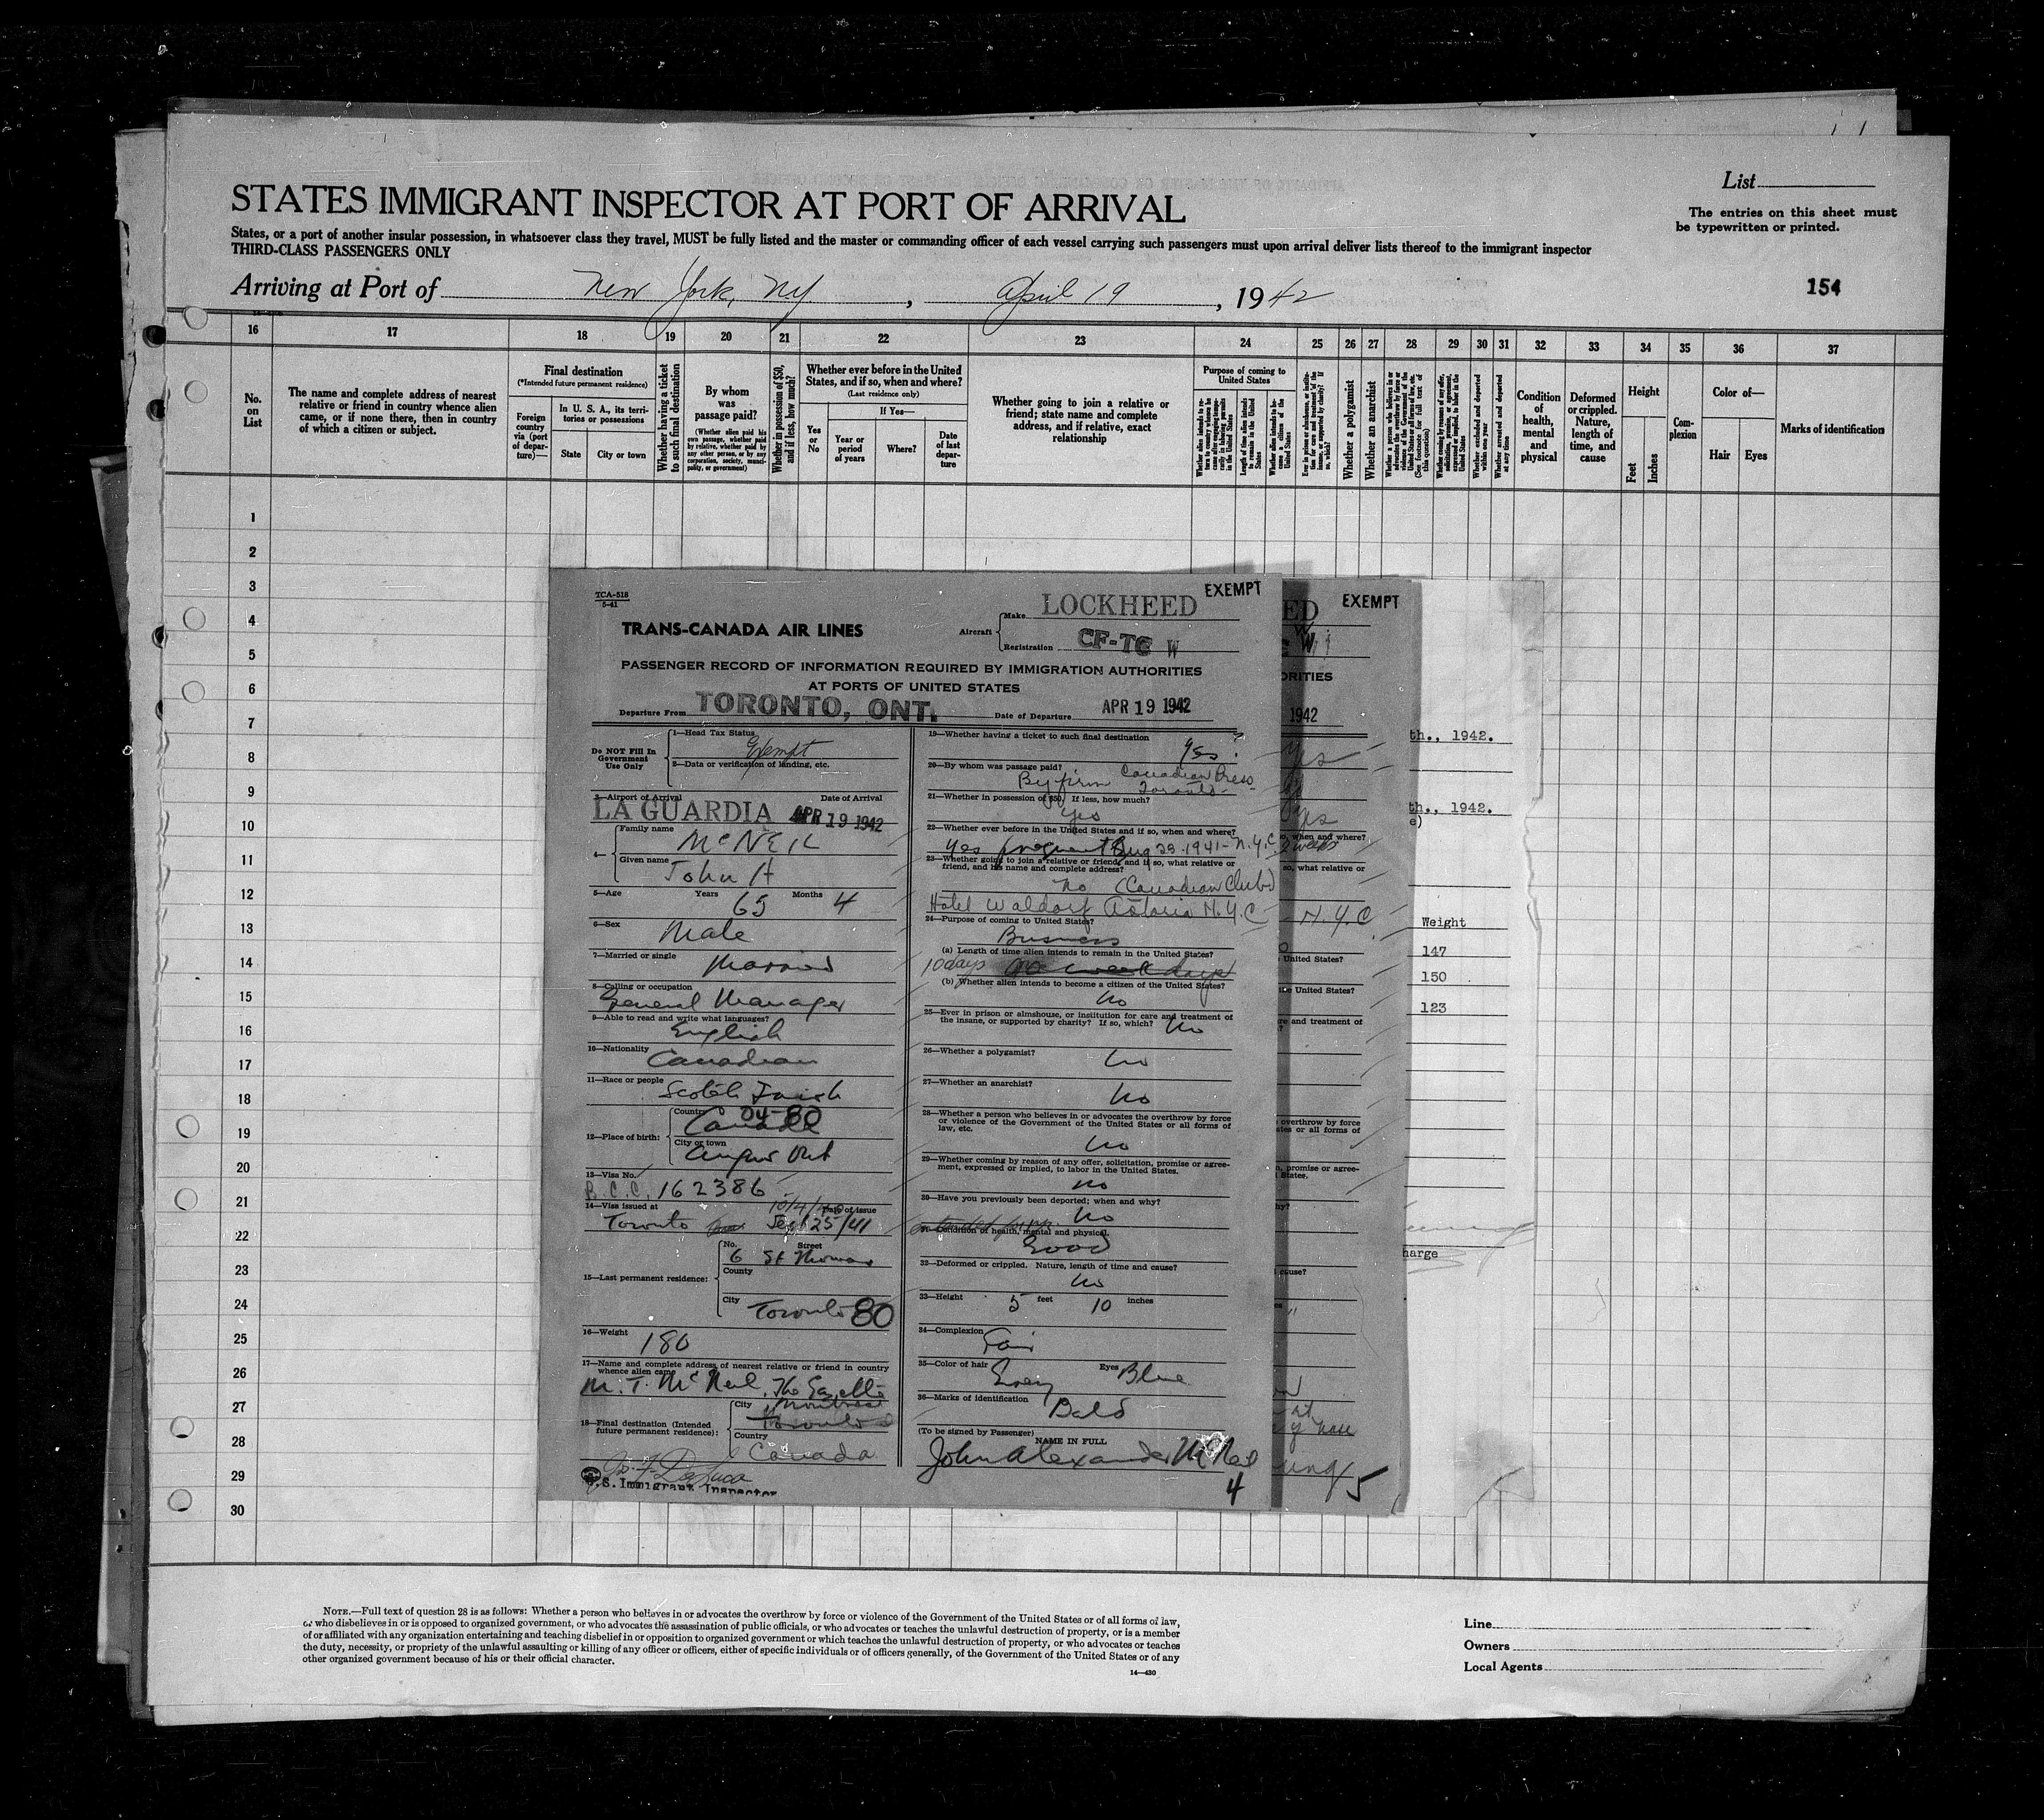 STATES IMMIGRANT INSPECTOR AT PORT OF ARRIVAL
List
The entries on this sheet must
be typewritten or printed.
States, or a port of another insular possession, in whatsoever class they travel, MUST be fully listed and the master or commanding officer of each vessel carrying such passengers must upon arrival deliver lists thereof to the immigrant inspector
THIRD-CLASS PASSENGERS ONLY
Arriving at Port of New York, NY, April 19, 1942
154
16 17 18 19 20 21 22 23 24 25 26 27 28 29 30 31 32 33 34 35 36 37
No. on List
The name and complete address of nearest
relative or friend in country whence alien
came, or if none there, then in country
of which a citizen or subject.
Final destination
(*Intended future permanent residence)
Foreign country via (port of departure)—
In U. S. A., its territories or possessions
State City or town
Whether having a ticket to such final destination
By whom was passage paid?
(Whether alien paid his own passage, whether paid by relative, whether paid by any other person, or by any corporation, society, municipality, or government)
Whether in possession of $50, and if less, how much?
Whether ever before in the United
States, and if so, when and where?
(Last residence only)
Yes or No
If Yes—
Year or period of years
Where?
Date of last departure
Whether going to join a relative or
friend; state name and complete
address, and if relative, exact
relationship
Purpose of coming to United States
Length of time alien intends to remain in the United States
Whether alien intends to become a citizen of the United States
Whether a polygamist
Whether an anarchist
Whether excluded and deported within one year
Whether arrested and deported at any time
Condition of health, mental and physical
Deformed or crippled. Nature, length of time, and cause
Height
Feet Inches
Complexion
Color of—
Hair Eyes
Marks of identification
1
2
3
4
5
6
7
8
9
10
11
12
13
14
15
16
17
18
19
20
21
22
23
24
25
26
27
28
29
30
TCA-518
5-41
EXEMPT
TRANS-CANADA AIR LINES
Aircraft
Make LOCKHEED
Registration CF-TC W
PASSENGER RECORD OF INFORMATION REQUIRED BY IMMIGRATION AUTHORITIES
AT PORTS OF UNITED STATES
Departure From TORONTO, ONT. Date of Departure APR 19 1942
Do NOT Fill In
Government
Use Only
1—Head Tax Status Exempt
2—Data or verification of landing, etc.
3—Airport of Arrival Date of Arrival
LA GUARDIA APR 19 1942
4—
Family name McNEIL
Given name John A
5—Age Years 65 Months 4
6—Sex Male
7—Married or single Married
8—Calling or occupation
General Manager
9—Able to read and write what languages?
English
10—Nationality
Canadian
11—Race or people Scotch Irish
12—Place of birth:
Country 04-80
Canada
City or town
Angus Ont
13—Visa No.
B.C.C. 162386
14—Visa issued at Date of issue
Toronto Sept 25/41
15—Last permanent residence:
No. Street
6 St Thomas
County
City Toronto 80
16—Weight 180
17—Name and complete address of nearest relative or friend in country
whence alien came
M. T. McNeil, The Gazette
18—Final destination (Intended
future permanent residence):
City Montreal
Toronto
Country
Canada
U.S. Immigrant Inspector
19—Whether having a ticket to such final destination
yes
20—By whom was passage paid?
By firm Canadian Press
Toronto
21—Whether in possession of $50. If less, how much?
Yes
22—Whether ever before in the United States and if so, when and where?
Yes frequent Aug 25 1941 - N.Y.C. 2 weeks
23—Whether going to join a relative or friend and if so, what relative or
friend, and his name and complete address?
no (Canadian Club)
Hotel Waldorf Astoria N.Y.C
24—Purpose of coming to United States?
Business
(a) Length of time alien intends to remain in the United States?
10 days
(b) Whether alien intends to become a citizen of the United States?
no
25—Ever in prison or almshouse, or institution for care and treatment of
the insane, or supported by charity? If so, which? no
26—Whether a polygamist? no
27—Whether an anarchist?
no
28—Whether a person who believes in or advocates the overthrow by force
or violence of the Government of the United States or all forms of
law, etc.
no
29—Whether coming by reason of any offer, solicitation, promise or agree-
ment, expressed or implied, to labor in the United States.
no
30—Have you previously been deported; when and why?
no
31—Condition of health, mental and physical.
Good
32—Deformed or crippled. Nature, length of time and cause?
no
33—Height 5 feet 10 inches
34—Complexion Fair
35—Color of hair Grey Eyes Blue
36—Marks of identification Bald
(To be signed by Passenger)
NAME IN FULL
John Alexander McNeil
4
ED EXEMPT
W
ORITIES
1942
yes
so, when and where?
so, what relative or
N.Y.C.
United States?
the United States?
re and treatment of
overthrow by force
ates or all forms of
n, promise or agree-
States.
cause?
5
th., 1942.
th., 1942.
e)
Weight
147
150
123
harge
NOTE.—Full text of question 28 is as follows: Whether a person who believes in or advocates the overthrow by force or violence of the Government of the United States or of all forms of law,
or who disbelieves in or is opposed to organized government, or who advocates the assassination of public officials, or who advocates or teaches the unlawful destruction of property, or is a member
of or affiliated with any organization entertaining and teaching disbelief in or opposition to organized government or which teaches the unlawful destruction of property, or who advocates or teaches
the duty, necessity, or propriety of the unlawful assaulting or killing of any officer or officers, either of specific individuals or of officers generally, of the Government of the United States or of any
other organized government because of his or their official character.
14—430
Line
Owners
Local Agents